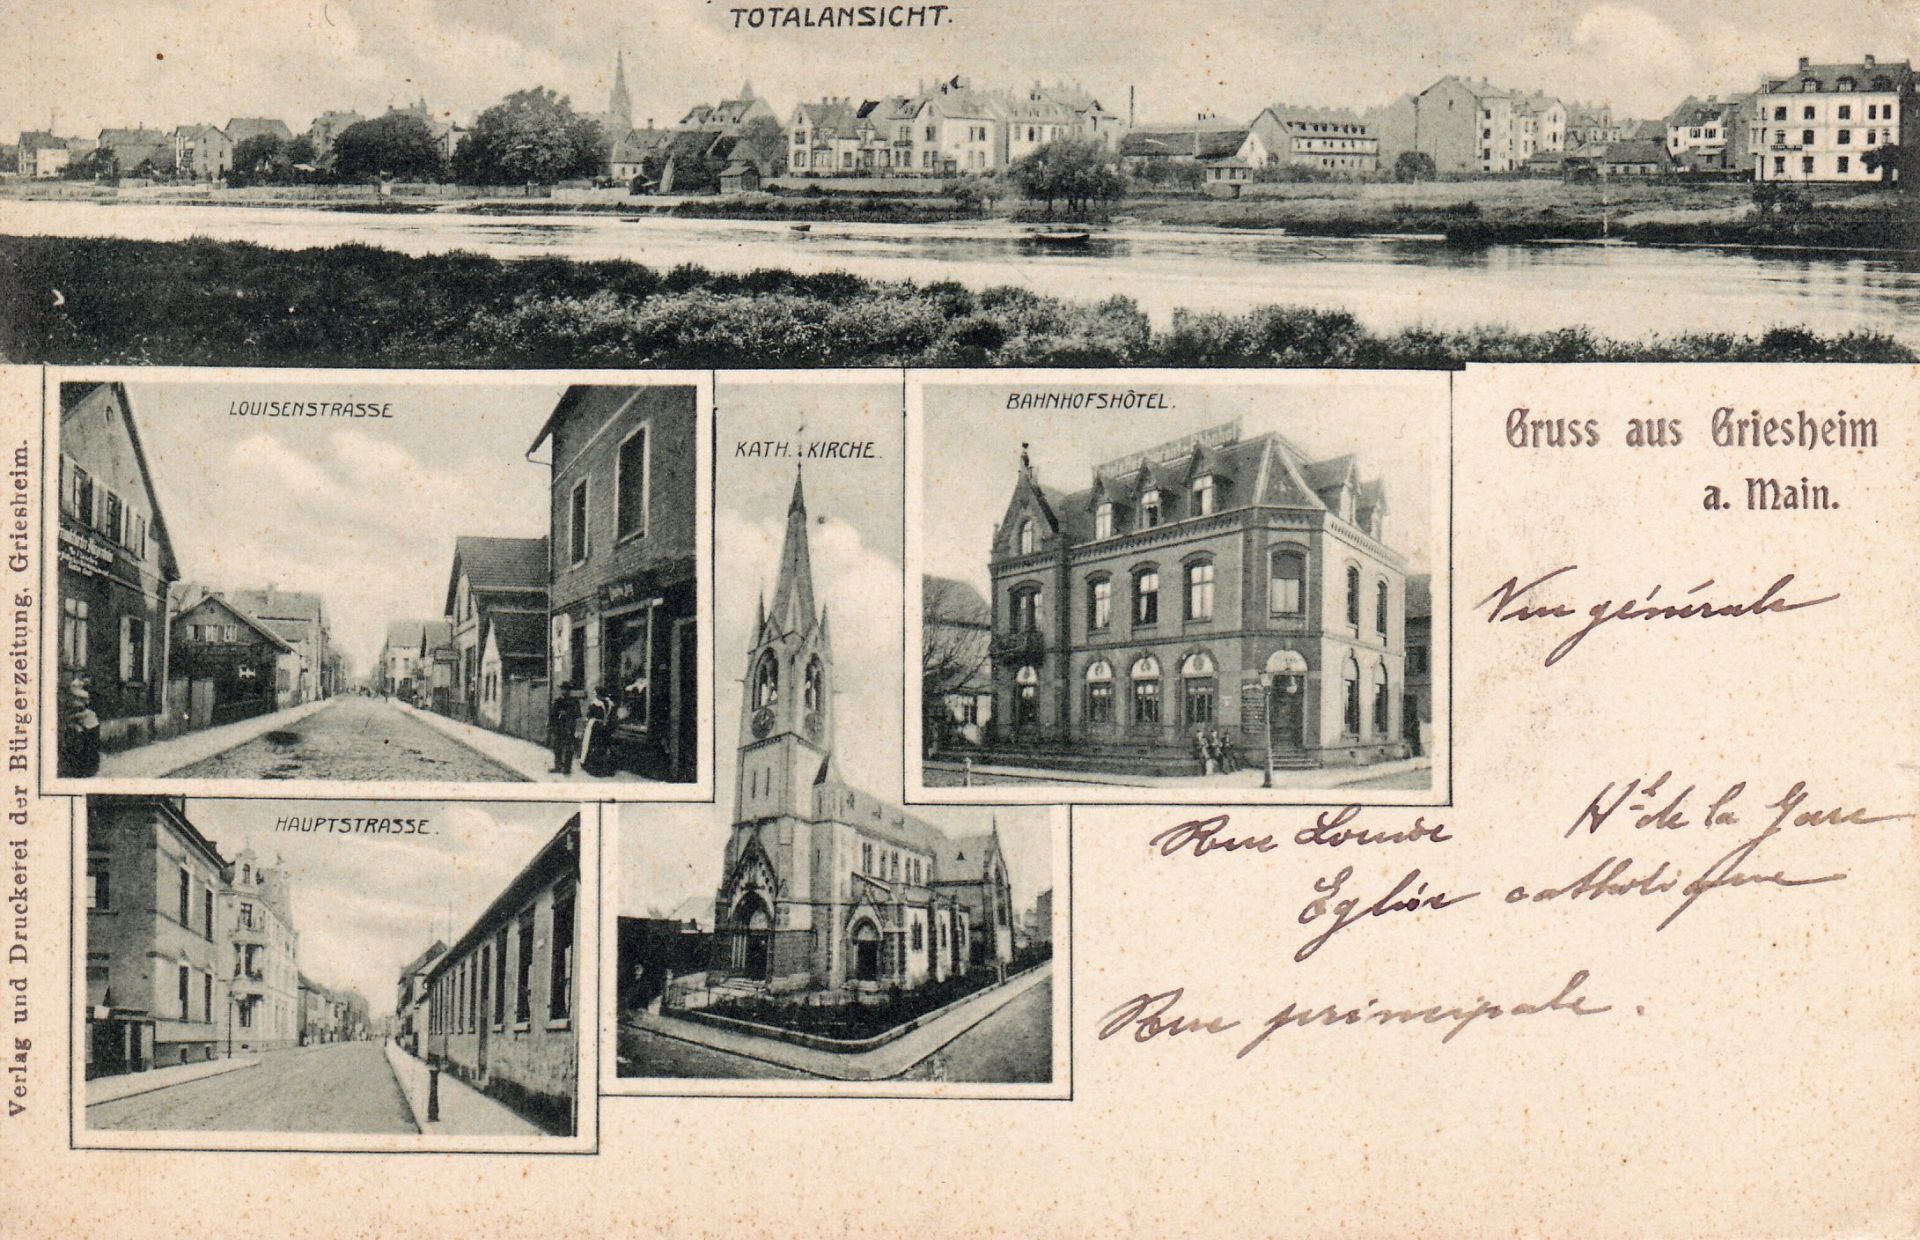 TOTALANSICHT.
LOUISENSTRASSE
KATH. KIRCHE.
BAHNHOFSHÔTEL.
Gruss aus Griesheim
a. Main.
Vue générale
HAUPTSTRASSE.
Rue Louise
Hel de la Gare
Eglise catholique
Rue principale.
Verlag und Druckerei der Bürgerzeitung, Griesheim.